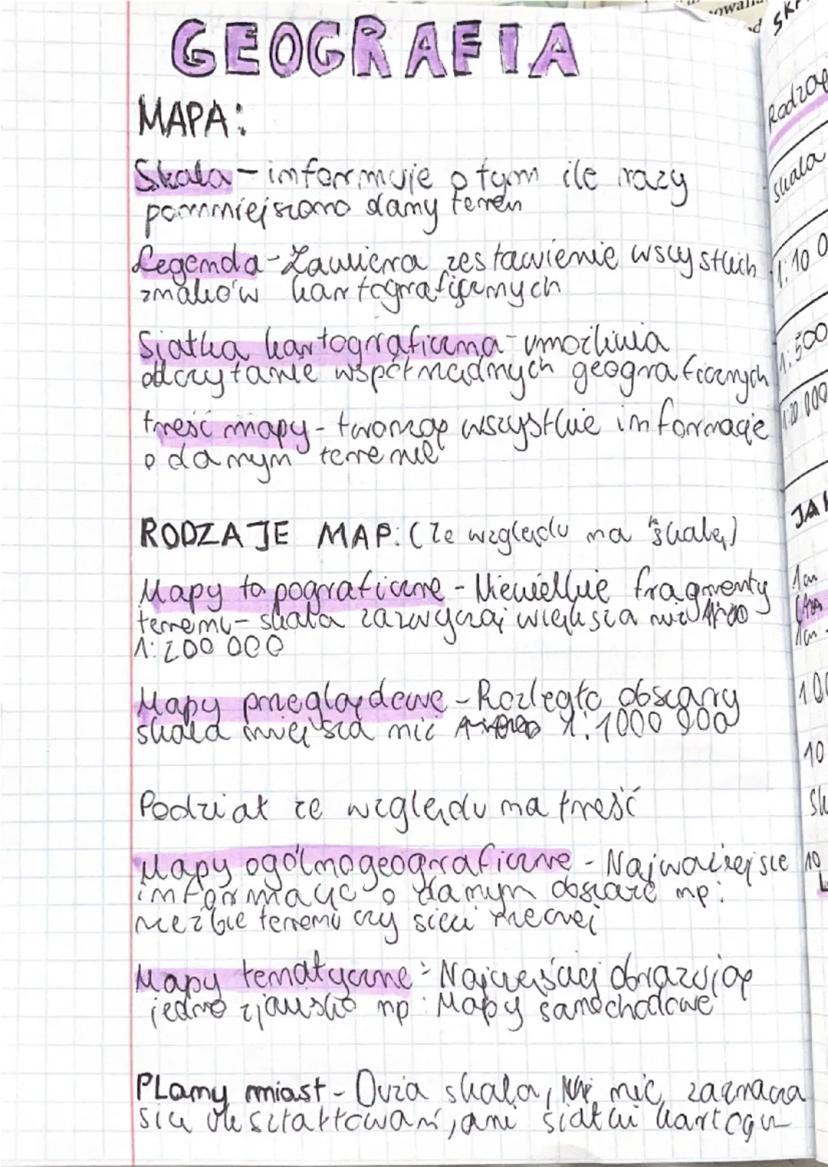 GEOGRAFIA
MAPA:
Skala - informuje o tym ile razy
pommniejszono dany teren
Legenda - Zawiera zestawienie wszystkich
znaków kartograficznych
Siatka kartograficzna - umożliwia
odczytanie współrzędnych geograficznych
treść mapy - tworzą wszystkie informacje
o danym terenie
RODZAJE MAP: (ze względu na skalę)
Mapy topograficzne - Niewielkie fragmenty
terenu - skala zazwyczaj większa niż
1:200 000
Mapy przeglądowe - Rozległe obszary
skala mniejsza niż 1:1000 000
Podział ze względu na treść
Mapy ogólnogeograficzne - Najważniejsze
informacje o danym obszarze np:
rzeźbie terenu czy sieci rzecznej
Mapy tematyczne - Najczęściej obrazują
jedno zjawisko np: Mapy samochodowe
PLany miast - Duża skala, nie zaznacza
się ukształtowań, ani siatki kartogr
Rodzaj
skala
1:10 0
1:500
JAK
1cm
1cm
100
10
Sk
10